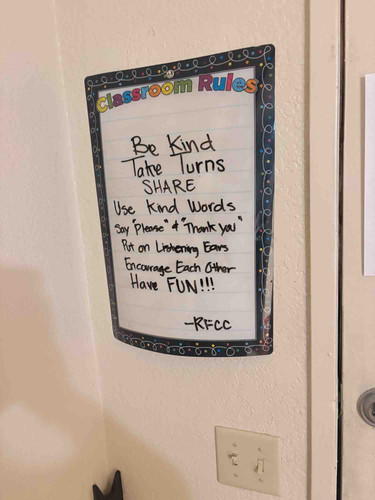 Classroom Rules
Be Kind
Take Turns
SHARE
Use Kind Words
Say "Please" & "Thank you"
Put on Listening Ears
Encourage Each Other
Have FUN!!!
-RFCC